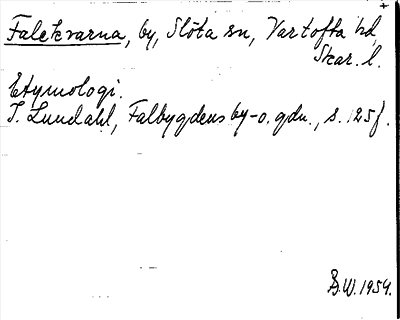 Falekvarna, by, Slöta sn, Vartofta hd,
Skar. l.
Etymologi.
I. Lundahl, Falbygdens by-o. gdn., s. 125f.
B.W. 1954.